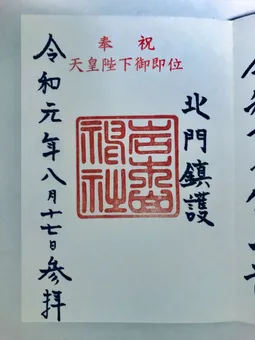 奉祝
天皇陛下御即位
北門鎮護
岩木山神社
令和元年八月十七日参拝